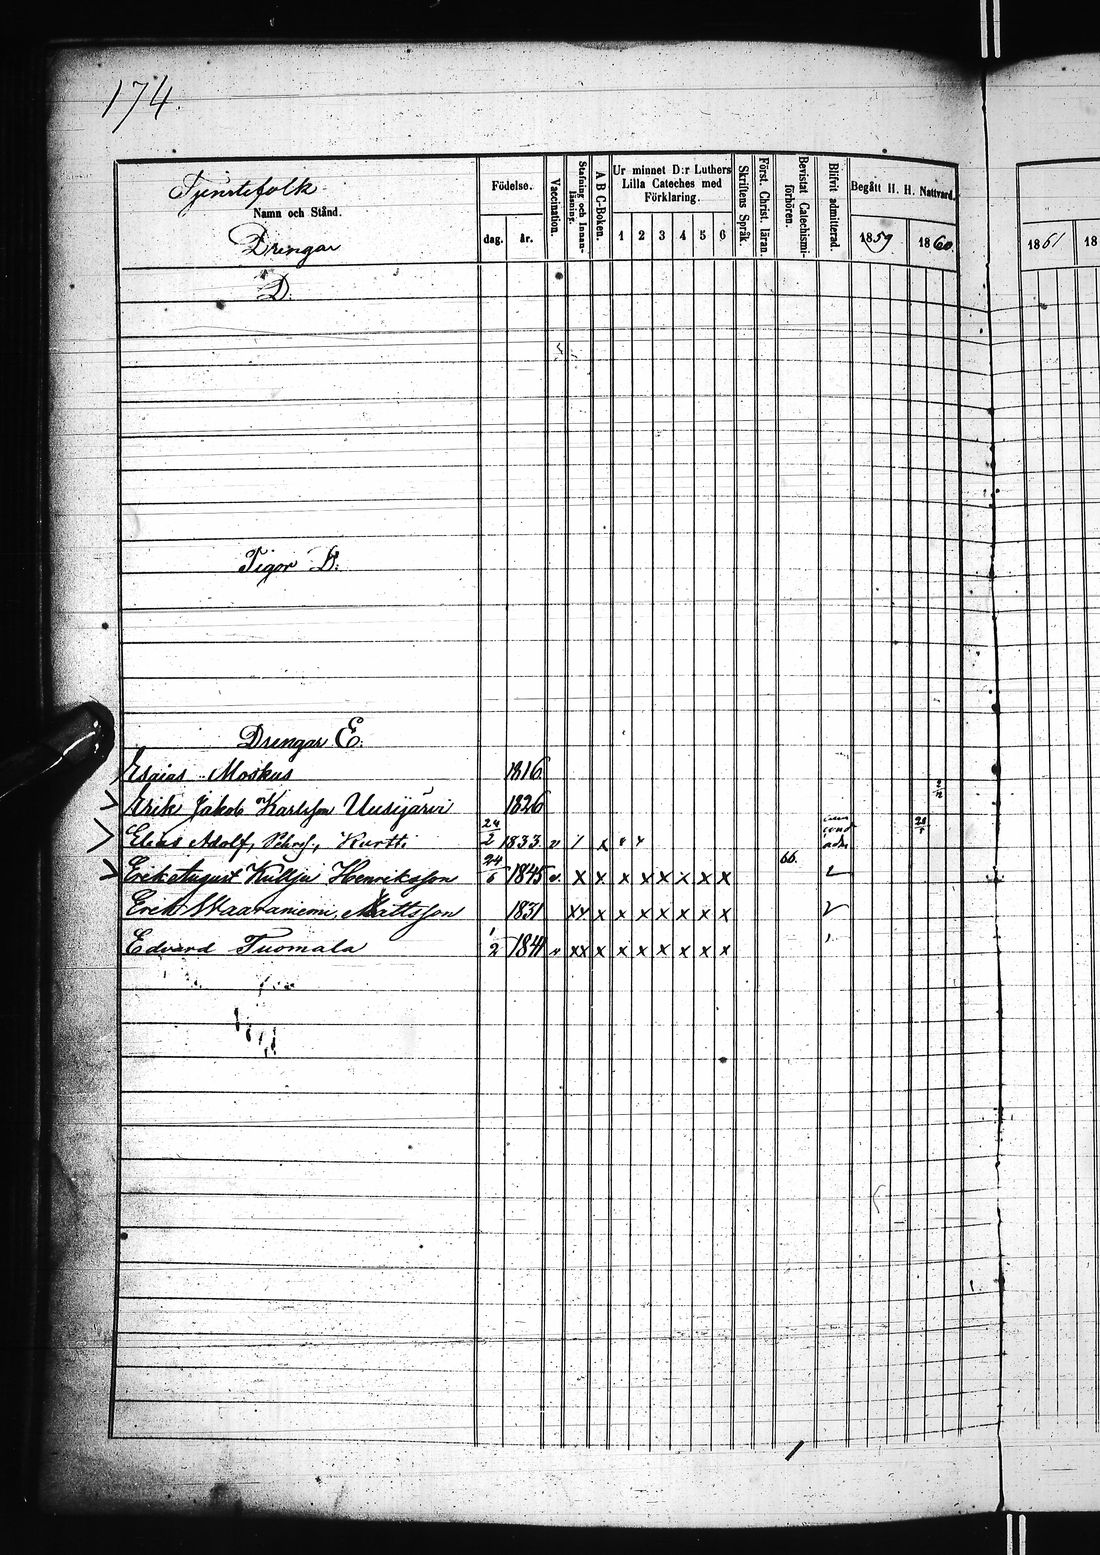 174.
Tjenstefolk
Namn och Stånd.
Drengar
Födelse.
dag. år.
Vaccination.
Stafning och Innanläsning.
A B C-Boken.
Ur minnet D:r Luthers Lilla Cateches med Förklaring.
1 2 3 4 5 6
Skriftens Språk.
Förest. Christ. läran.
Bevistat Catechismi-förhören.
Blifvit admitterad.
Begått H. H. Nattvard.
1859 1860
1861 18
D.
Pigor D:
Drengar E:
Esaias Moskus 1816
Erik Jakob Karlsson Uusijärvi 1826 2/12
Elias Adolf, Kurtti 24/2 1833 v / x
Erik August Kulju Henriksson 24/5 1845 v x x x x x x x x 66.
Erik Skaaraniemi, Mattsson 1831 xx x x x x x x x
Edvard Tuomala 1/2 1841 v xx x x x x x x x